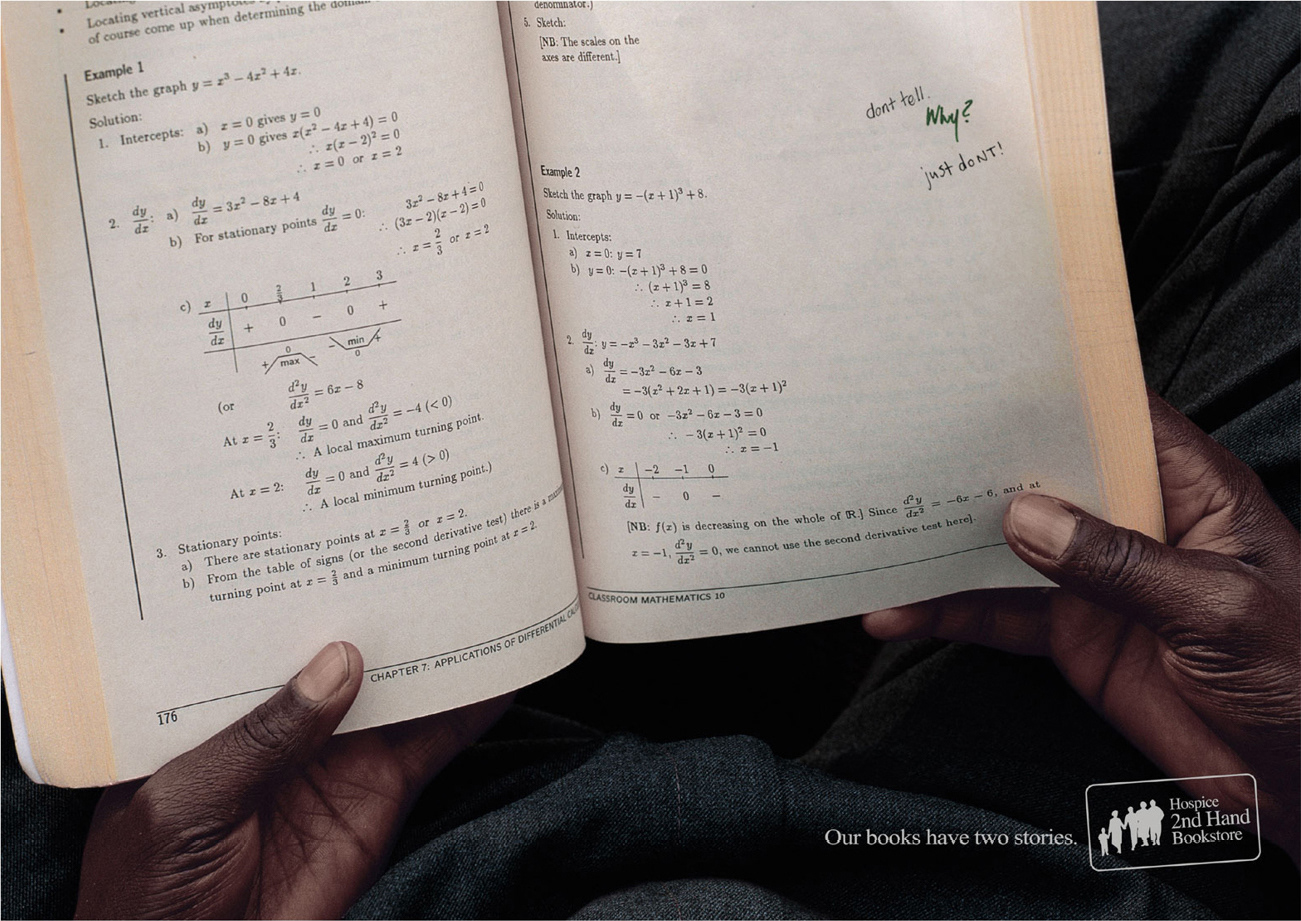 Locating vertical asymptotes
of course come up when determining the
Example 1
Sketch the graph y = x³ − 4x² + 4x.
Solution:
1. Intercepts: a) x = 0 gives y = 0
b) y = 0 gives x(x² − 4x + 4) = 0
∴ x(x − 2)² = 0
∴ x = 0 or x = 2
2. dy/dx: a) dy/dx = 3x² − 8x + 4
b) For stationary points dy/dx = 0: 3x² − 8x + 4 = 0
∴ (3x − 2)(x − 2) = 0
∴ x = 2/3 or x = 2
c) x 0 2/3 1 2 3
dy/dx + 0 − 0 +
+ 0 max − − min 0 +
(or d²y/dx² = 6x − 8
At x = 2/3: dy/dx = 0 and d²y/dx² = −4 (< 0)
∴ A local maximum turning point.
At x = 2: dy/dx = 0 and d²y/dx² = 4 (> 0)
∴ A local minimum turning point.)
3. Stationary points:
a) There are stationary points at x = 2/3 or x = 2.
b) From the table of signs (or the second derivative test) there is a
turning point at x = 2/3 and a minimum turning point at x = 2.
176
CHAPTER 7: APPLICATIONS OF DIFFERENTIAL
denominator.)
5. Sketch:
[NB: The scales on the
axes are different.]
dont tell.
Why?
just doNT!
Example 2
Sketch the graph y = −(x + 1)³ + 8.
Solution:
1. Intercepts:
a) x = 0: y = 7
b) y = 0: −(x + 1)³ + 8 = 0
∴ (x + 1)³ = 8
∴ x + 1 = 2
∴ x = 1
2. dy/dx: y = −x³ − 3x² − 3x + 7
a) dy/dx = −3x² − 6x − 3
= −3(x² + 2x + 1) = −3(x + 1)²
b) dy/dx = 0 or −3x² − 6x − 3 = 0
∴ −3(x + 1)² = 0
∴ x = −1
c) x −2 −1 0
dy/dx − 0 −
[NB: f(x) is decreasing on the whole of ℝ.] Since d²y/dx² = −6x − 6, and at
x = −1, d²y/dx² = 0, we cannot use the second derivative test here].
CLASSROOM MATHEMATICS 10
Our books have two stories.
Hospice
2nd Hand
Bookstore